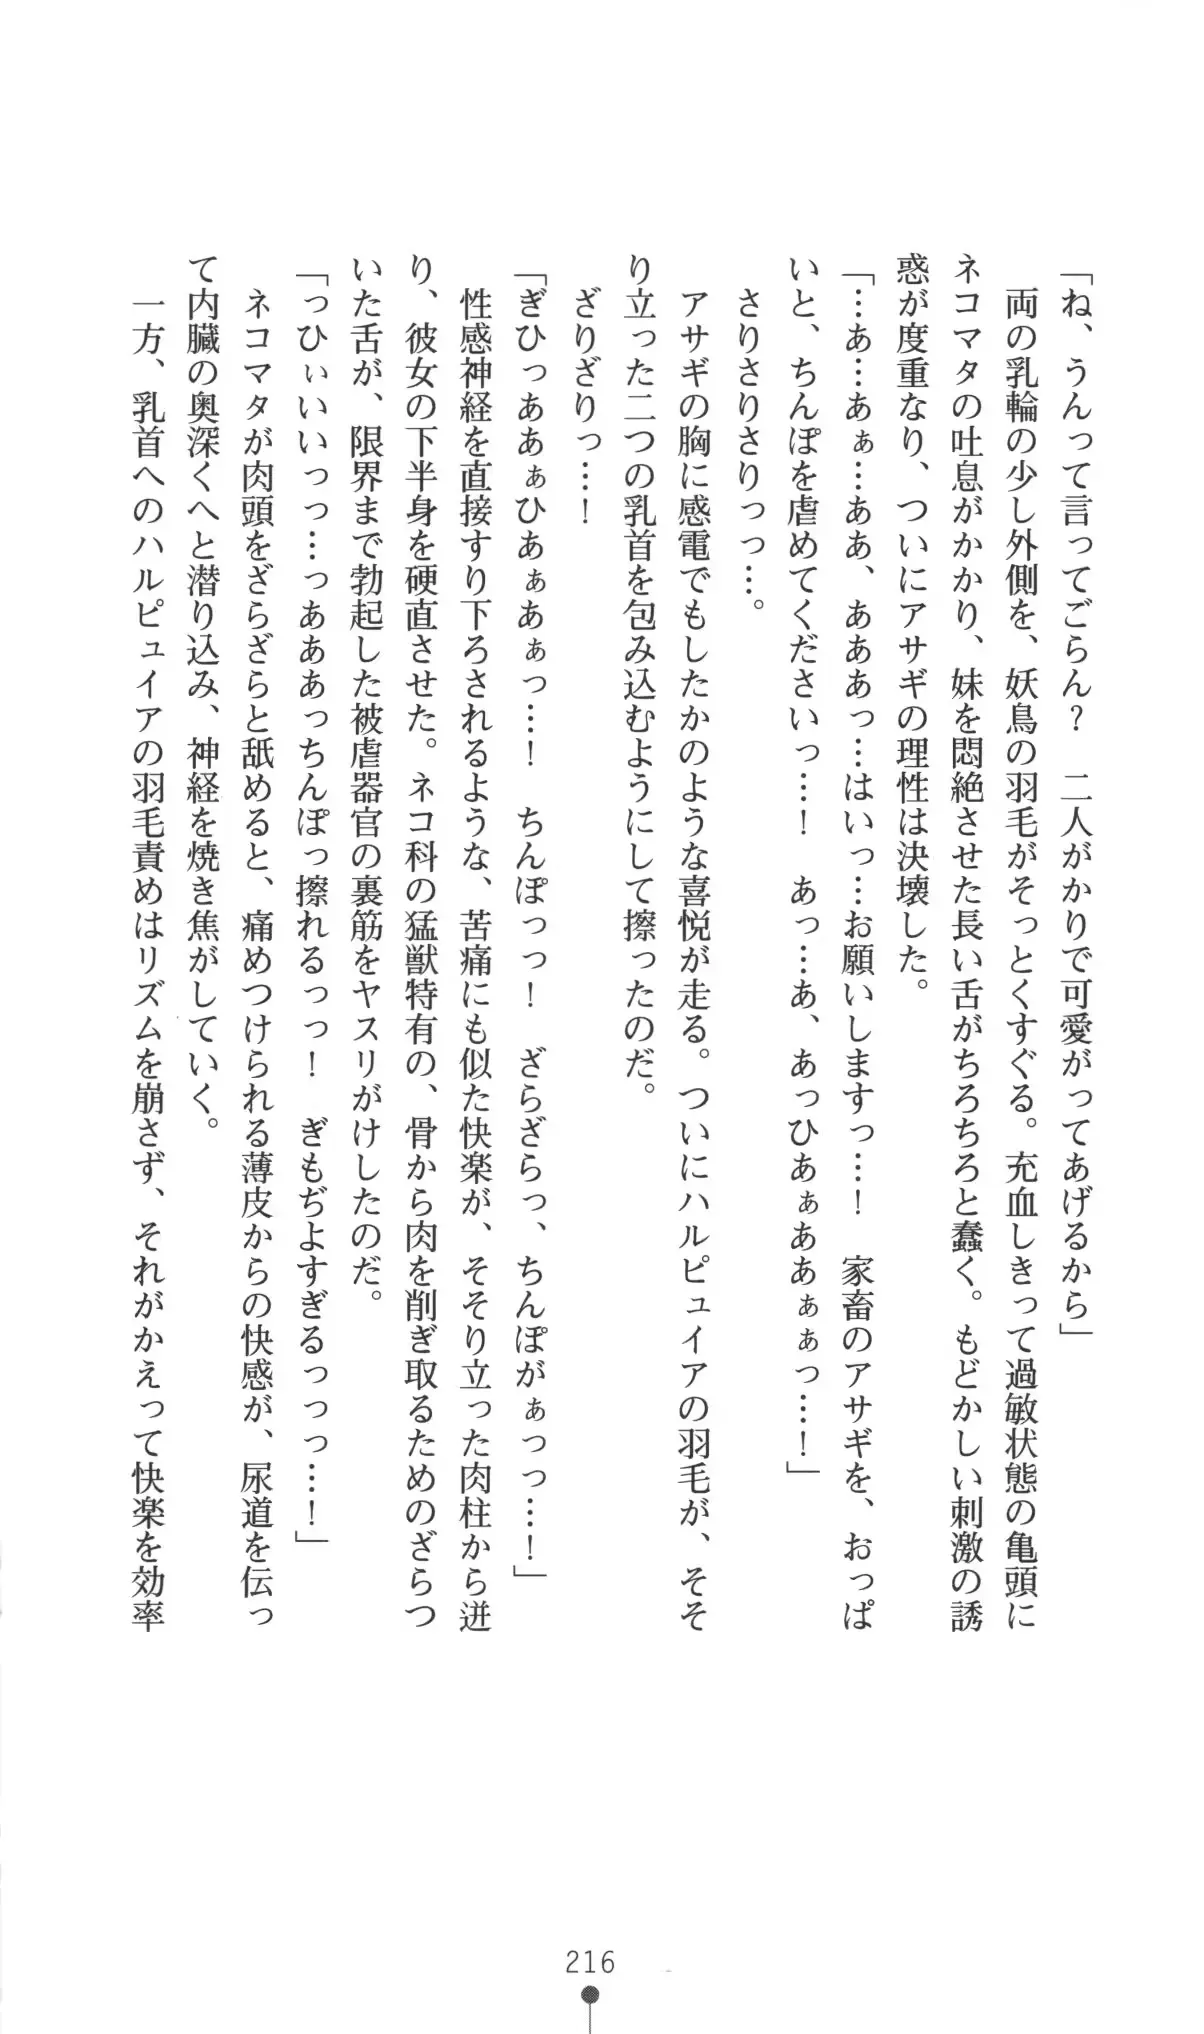 「ね、うんって言ってごらん？　二人がかりで可愛がってあげるから」
　両の乳輪の少し外側を、妖鳥の羽毛がそっとくすぐる。充血しきって過敏状態の亀頭に
ネコマタの吐息がかかり、妹を悶絶させた長い舌がちろちろと蠢く。もどかしい刺激の誘
惑が度重なり、ついにアサギの理性は決壊した。
「…あ…あぁ…ああ、あああっ…はいっ…お願いしますっ…！　家畜のアサギを、おっぱ
いと、ちんぽを虐めてくださいっ…！　あっ…あ、あっひあぁああぁぁっ…！」
　さりさりさりっっ…。
　アサギの胸に感電でもしたかのような喜悦が走る。ついにハルピュイアの羽毛が、そそ
り立った二つの乳首を包み込むようにして擦ったのだ。
　ざりざりっ…！
「ぎひっああぁひあぁあぁっ…！　ちんぽっっ！　ざらざらっ、ちんぽがぁっっ…！」
　性感神経を直接すり下ろされるような、苦痛にも似た快楽が、そそり立った肉柱から迸
り、彼女の下半身を硬直させた。ネコ科の猛獣特有の、骨から肉を削ぎ取るためのざらつ
いた舌が、限界まで勃起した被虐器官の裏筋をヤスリがけしたのだ。
「っひぃいいっっ…っあああっちんぽっ擦れるっっ！　ぎもぢよすぎるっっっ…！」
　ネコマタが肉頭をざらざらと舐めると、痛めつけられる薄皮からの快感が、尿道を伝っ
て内臓の奥深くへと潜り込み、神経を焼き焦がしていく。
　一方、乳首へのハルピュイアの羽毛責めはリズムを崩さず、それがかえって快楽を効率
216